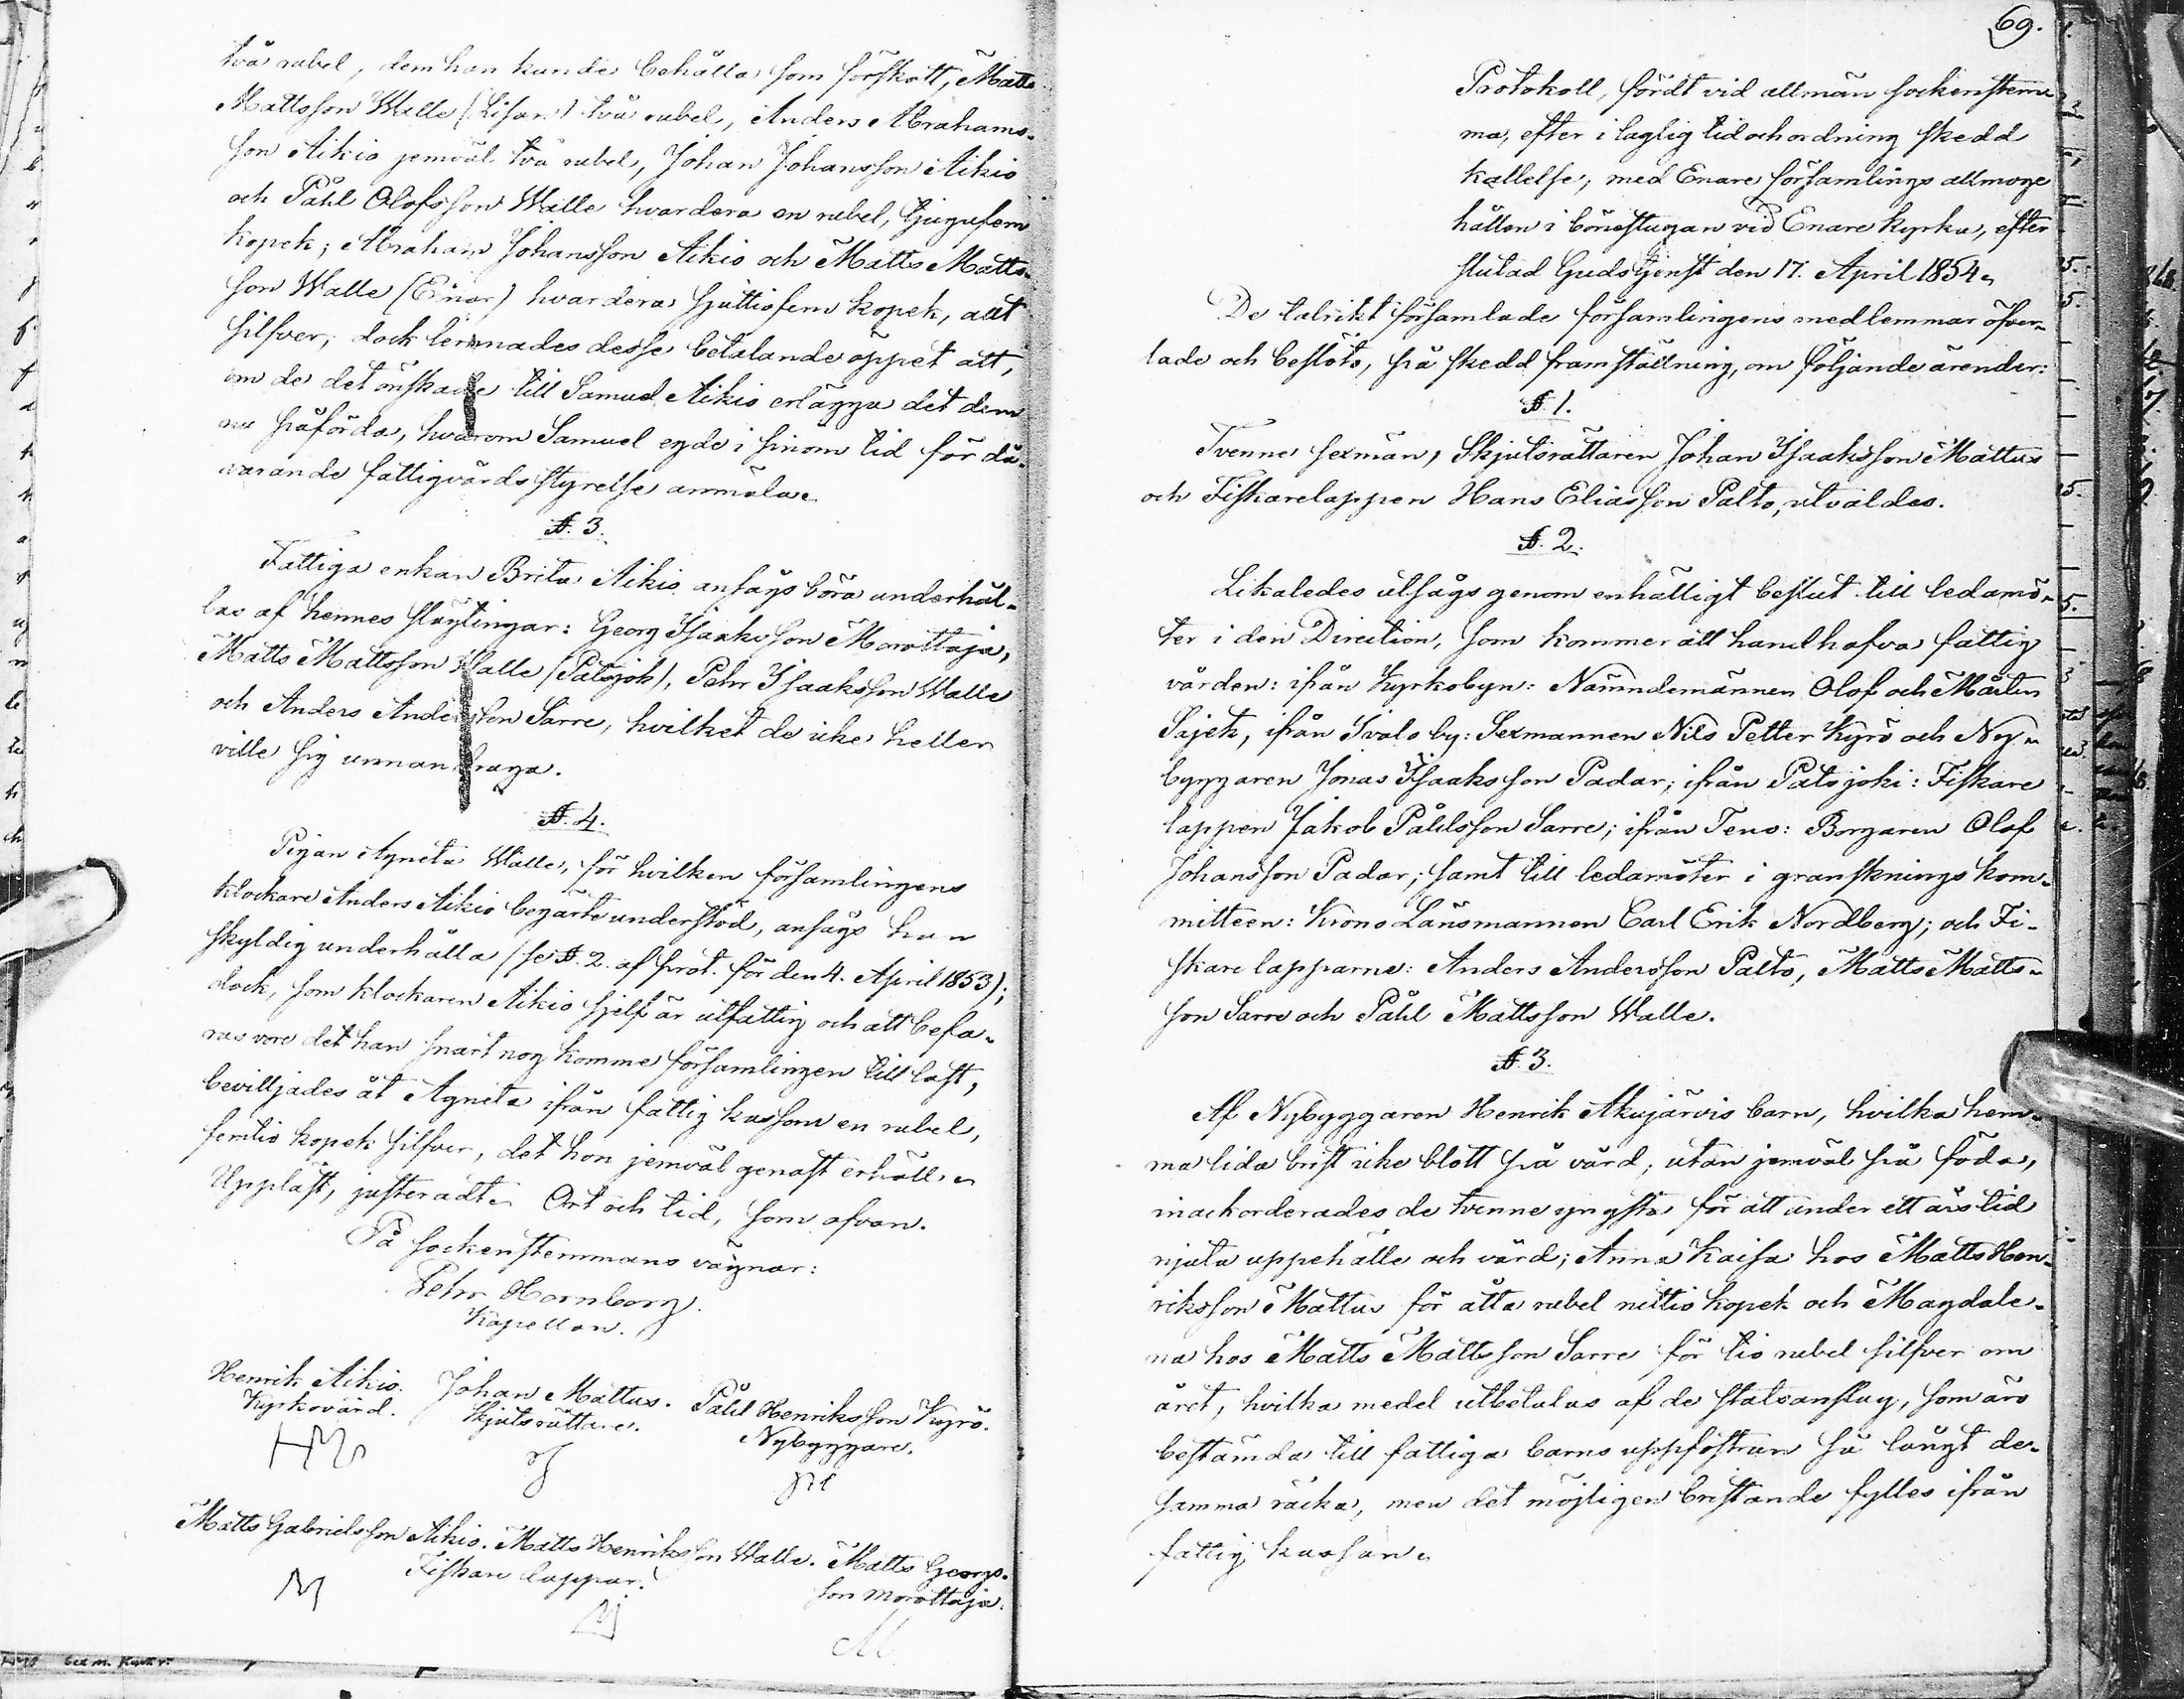 två rubel, dem han kunde behålla som förskott, Matts
Mattsson Walle (Lisan) två rubel, Anders Abrahams-
son Aikio jemväl två rubel, Johan Johansson Aikio
och Påhl Olofsson Walle hvardera en rubel, tjugufem
kopek; Abraham Johansson Aikio och Matts Matts-
son Walle (Einar) hvardera sjuttiofem kopek, allt
silfver; dock lemnades desse betalande öppet att,
om de det önskade till Samuel Aikio erlägga det dem
nu påförda, hvarom Samuel egde i sinom tid för då-
varande fattigvårdsstyrelse anmäla.
§. 3.
Fattiga enkan Brita Aikio ansågs böra underhål-
las af hennes släktingar: Georg Isaaksson Morottaja,
Matts Mattsson Walle (Patsjok), Pehr Isaaksson Walle
och Anders Andersson Sarre, hvilket de icke heller
ville sig unnandraga.
§. 4.
Pigan Agneta Walle, för hvilken församlingens
klockare Anders Aikio begärte understöd, ansågs han
skyldig underhålla (se §. 2. af prot. för den 4. April 1853);
dock, som klockaren Aikio sjelf är utfattig och att befa-
ras vore det han snart nog komme församlingen till last,
beviljades åt Agneta ifrån fattig kassan en rubel,
femtio kopek silfver, det hon jemväl genast erhöll.
Uppläst, justeradt. Ort och tid, som ofvan.
På sockenstemmans vägnar:
Pehr Hornborg.
Kapellan.
Henrik Aikio. Johan Mattus. Påhl Henriksson Kyrö.
Kyrkovärd. Skjutsrättare. Nybyggare.
Matts Gabrielsson Aikio. Matts Henriksson Walle. Matts Georgs-
Fiskare lappar. son Morottaja.
M M
69.
Protokoll, fördt vid allmän sockenstem-
ma, efter i laglig tid och ordning skedd
kallelse, med Enare församlings allmoge
hållen i bönestugan vid Enare kyrka, efter
slutad Gudstjenst den 17. April 1854.
De talrikt församlade församlingens medlemmar öfver-
lade och beslöto, på skedd framställning, om följande ärender:
§. 1.
Tvenne sexmän, Skjutsrättaren Johan Isaaksson Mattus
och Fiskarelappen Hans Eliasson Palto, utvaldes.
§. 2.
Likaledes utsågs genom enhälligt beslut till ledamö-
ter i den Direction, som kommer att handhafva fattig
vården: ifrån Kyrkobyn: Nämndemännen Olof och Mårten
Sajets, ifrån Ivalo by: Sexmannen Nils Petter Kyrö och Ny-
byggaren Jonas Isaaksson Padar; ifrån Patsjoki: Fiskare
lappen Jakob Påhlsson Sarre; ifrån Teno: Borgaren Olof
Johansson Padar; samt till ledamöter i gransknings kom-
mitteen: Krono Länsmannen Carl Erik Nordberg; och Fi-
skare lapparne: Anders Andersson Palto, Matts Matts-
son Sarre och Påhl Mattsson Walle.
§. 3.
Af Nybyggaren Henrik Akujärvis barn, hvilka hem-
ma lida brist icke blott på vård, utan jemväl på föda,
inackorderades de tvenne yngsta för att under ett års tid
njuta uppehälle och vård; Anna Kaisa hos Matts Hen-
riksson Mattus för åtta rubel nittio kopek och Magdale-
na hos Matts Mattsson Sarre för tio rubel silfver om
året, hvilka medel utbetalas af de statsanslag, som äro
bestämda till fattiga barns uppfostran så långt de-
samma räcka, men det möjligen bristande fylles ifrån
fattig kassan.